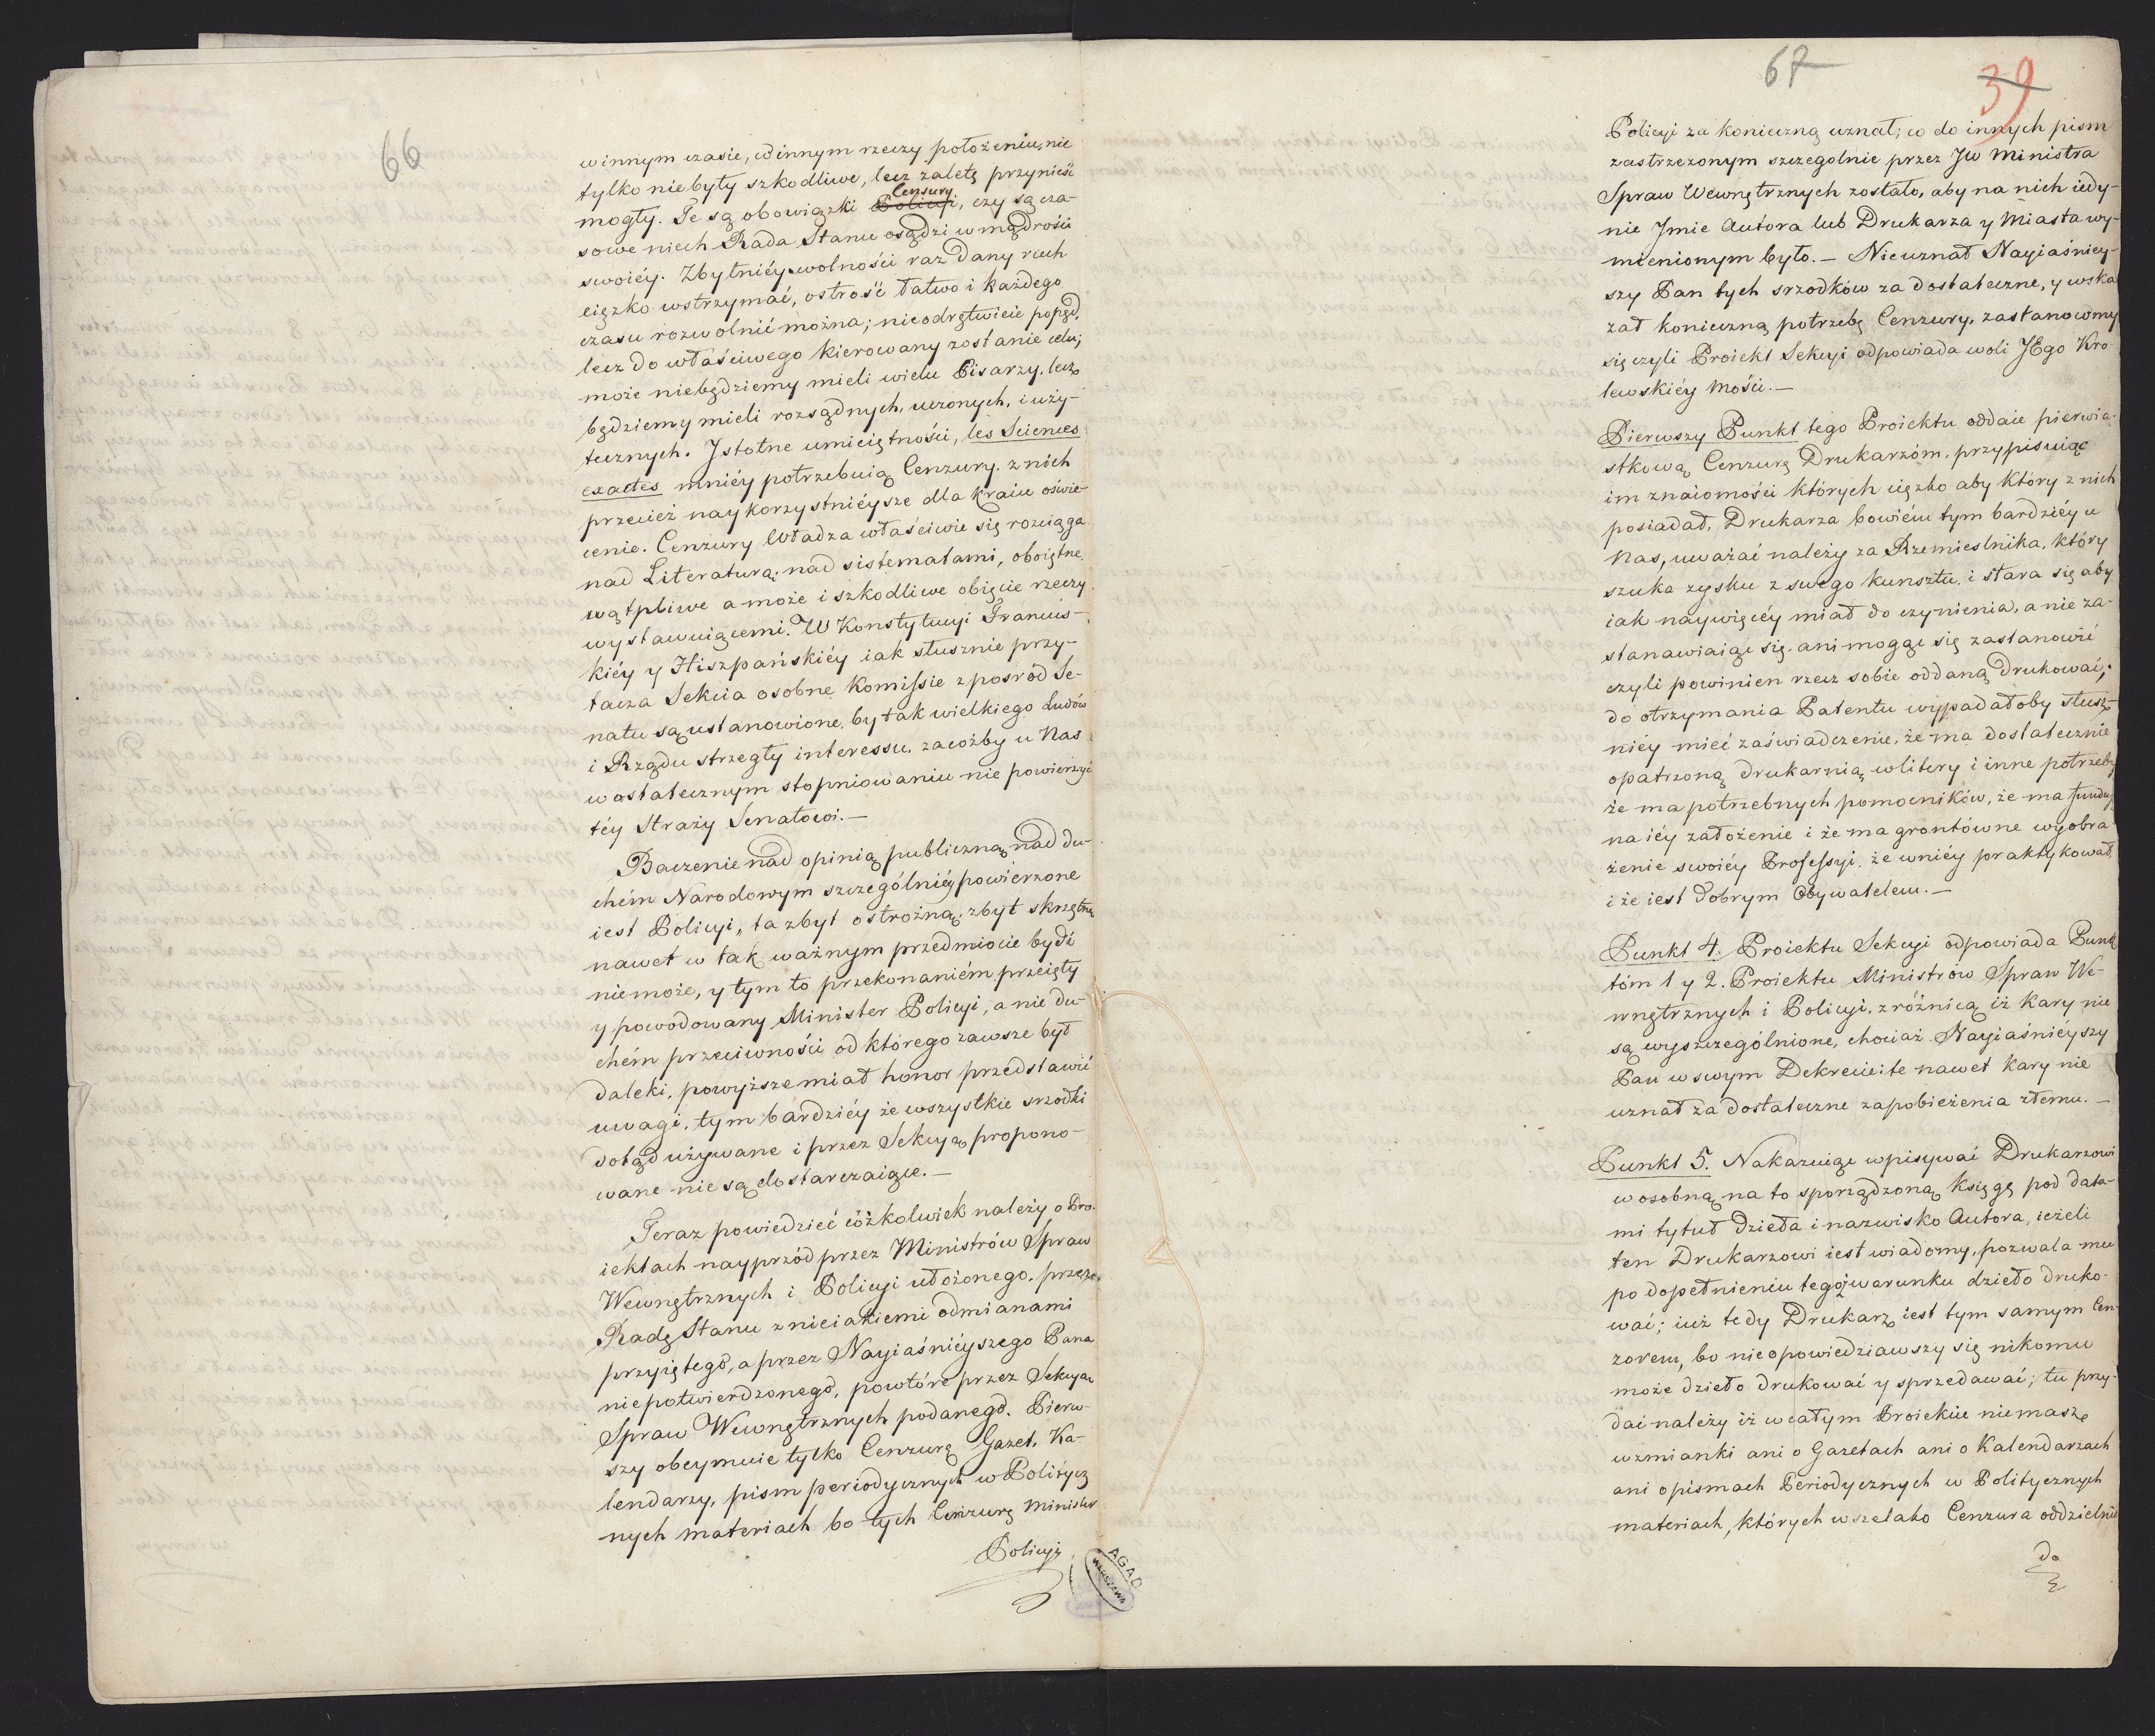 66
w innym czasie, w innym rzeczy położeniu, nie
tylko nie były szkodliwe, lecz zaletę przynieść
Cenzury
mogły. Te są obowiązki Policyi, czy są cza-
sowe niech Rada Stanu osądzi w mądrości
swoiéy. Zbytniéy wolności raz dany ruch
ciężko wstrzymać, ostrość łatwo i każdego
czasu rozwolnić można; nieodrętwicie popęd,
lecz do właściwego kierowany zostanie celu;
może niebędziemy mieli wielu Pisarzy, lecz
będziemy mieli rozsądnych, uczonych, i uży-
tecznych. Istotne umieiętności, les Sciences
exactes mniéy potrzebuią Cenzury. z nich
przecież naykorzystniéysze dla kraiu oświe-
cenie. Cenzury Władza właściwie się rozciąga
nad Literaturą; nad sistematami, oboiętne,
wątpliwe a może i szkodliwe obięcie rzeczy
wystawuiącemi. W Konstytucyi Francus-
kiéy y Hiszpańskiéy iak słusznie przy-
tacza Sekcia osobne Komissie z pośród Se-
natu są ustanowione, by tak wielkiego Ludów
i Rządu strzegły interessu, zacóżby u Nas
w ostatecznym stopniowaniu nie powierzyć
téy Straży Senatowi.—
Baczenie nad opinią publiczną, nad du-
chém Narodowym szczególniéy powierzone
iest Policyi, ta zbyt ostrożną, zbyt skrzętną
nawet w tak ważnym przedmiocie bydź
niemoże, y tym to przekonaniém przeięty
y powodowany Minister Policyi, a nie du-
chém przeciwności od którego zawsze był
daleki, powyższe miał honor przedstawić
uwagi, tym bardziéy że wszystkie srzodki
dotąd używane i przez Sekcyą propono-
wane nie są dostarczaiące.—
Teraz powiedzieć cóżkolwiek należy o Pro-
iektach nayprzód przez Ministrów Spraw
Wewnętrznych i Policyi ułożonego, przez
Radę Stanu z nieiakiemi odmianami
przyiętego, a przez Nayiaśniéyszego Pana
niepotwierdzonego, powtóre przez Sekcyą
Spraw Wewnętrznych podanego. Pierw-
szy obeymuie tylko Cenzurę Gazet, Ka-
lendarzy, pism periodycznych w Politycz
nych materiach bo tych Cenzurę Minister
Policyi
AGAD
WARSZAWA
67
39
Policyi za konieczną uznał; co do innych pism
zastrzeżonym szczegolnie przez JW Ministra
Spraw Wewnętrznych zostało, aby na nich iedy-
nie Jmie Autora lub Drukarza y Miasta wy-
mienionym było.— Nieuznał Nayiaśniey-
szy Pan tych srzodków za dostateczne, y wska
zał konieczną potrzebę Cenzury, zastanowmy
się czyli Proiekt Sekcyi odpowiada woli JEgo Kro-
lewskiéy Mości.—
Pierwszy Punkt tego Proiektu oddaie pierwia-
stkową Cenzurę Drukarzóm, przypisuiąc
im znaiomości których ciężko aby który z nich
posiadał, Drukarza bowiém tym bardziéy u
Nas, uważać należy za Rzemieslnika, który
szuka zysku z swego kunsztu, i stara się aby
iak naywięcéy miał do czynienia, a nie za-
stanawiaiąc się, ani mogąc się zastanowić
czyli powinien rzecz sobie oddaną drukować;
do otrzymania Patentu wypadałoby słusz-
niéy mieć zaświadczenie, że ma dostatecznie
opatrzoną drukarnią w litery i inne potrzeby
że ma potrzebnych pomocników, że ma fundusz
na iéy założenie i że ma grontówne wyobra-
żenie swoiéy Professyi, że w niéy praktykował,
i że iest dobrym Obywatelem.—
Punkt 4. Proiektu Sekcyi odpowiada Punk
tóm 1 y 2. Proiektu Ministrów Spraw We-
wnętrznych i Policyi, z różnicą iż kary nie
są wyszczególnione, chociaż Nayiaśniéyszy
Pan w swym Dekrecie te nawet kary nie
uznał za dostateczne zapobieżenia złemu.—
Punkt 5. Nakazuiąc wpisywać Drukarzowi
w osobną na to sporządzoną księgę pod data-
mi tytuł dzieła i nazwisko Autora, ieżeli
ten Drukarzowi iest wiadomy, pozwala mu
po dopełnieniu tegoż warunku dzieło druko-
wać; iuż tedy Drukarz iest tym samym Cen-
zorem, bo nie opowiedziawszy się nikomu
może dzieło drukować y sprzedawać; tu przy-
dać należy iż w całym Proiekcie niemasz
wzmianki ani o Gazetach ani o Kalendarzach
ani o pismach Periodycznych w Politycznych
materiach, których wszelako Cenzura oddzielnie
do